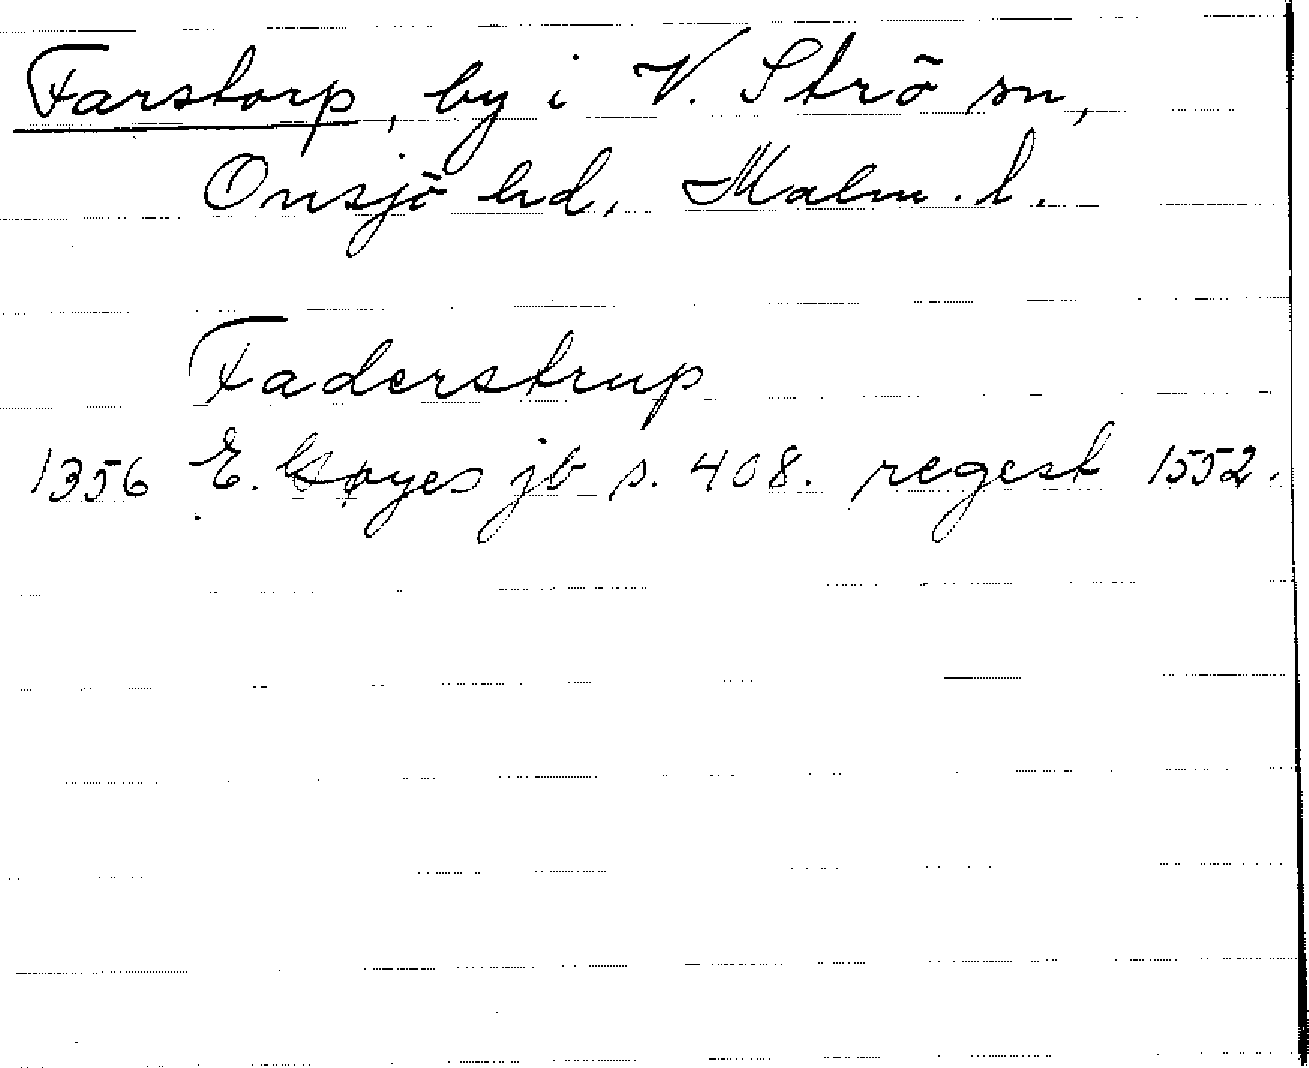 Farstorp, by i V. Strö sn,
Onsjö hd, Malm. l.
Faderstrup
1356 E. Gøyes jb s. 408. regest 1552.